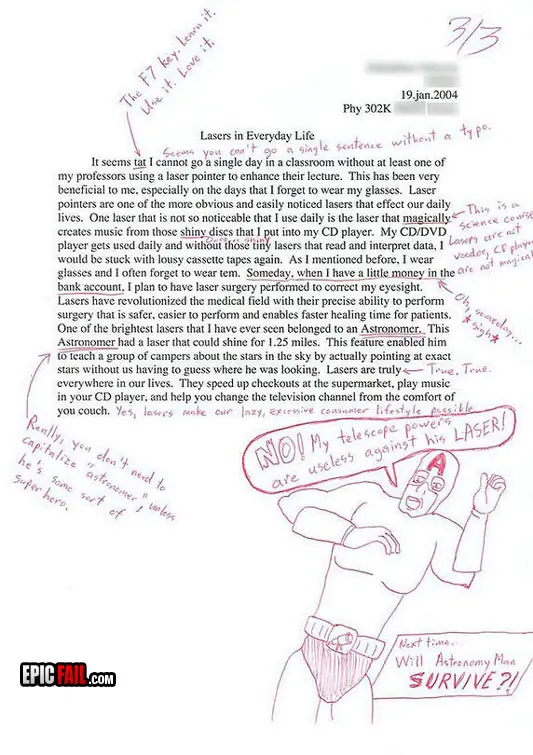 The F7 key. Learn it.
Use it. Love it.
3/3
19.jan.2004
Phy 302K
Lasers in Everyday Life
Seems you can't go a single sentence without a typo.
It seems tat I cannot go a single day in a classroom without at least one of
my professors using a laser pointer to enhance their lecture. This has been very
beneficial to me, especially on the days that I forget to wear my glasses. Laser
pointers are one of the more obvious and easily noticed lasers that effect our daily
lives. One laser that is not so noticeable that I use daily is the laser that magically
creates music from those shiny discs that I put into my CD player. My CD/DVD
player gets used daily and without those tiny lasers that read and interpret data, I
would be stuck with lousy cassette tapes again. As I mentioned before, I wear
glasses and I often forget to wear tem. Someday, when I have a little money in the
bank account, I plan to have laser surgery performed to correct my eyesight.
Lasers have revolutionized the medical field with their precise ability to perform
surgery that is safer, easier to perform and enables faster healing time for patients.
One of the brightest lasers that I have ever seen belonged to an Astronomer. This
Astronomer had a laser that could shine for 1.25 miles. This feature enabled him
to teach a group of campers about the stars in the sky by actually pointing at exact
stars without us having to guess where he was looking. Lasers are truly
everywhere in our lives. They speed up checkouts at the supermarket, play music
in your CD player, and help you change the television channel from the comfort of
you couch.
This is a
science course
Lasers are not
voodoo, CD players
are not magical
shiny
Oh, someday...
*sigh*
True. True.
Yes, lasers make our lazy, excessive consumer lifestyle possible
Really, you don't need to
capitalize "astronomer" unless
he's some sort of
superhero.
NO! My telescope powers
are useless against his LASER!
A
Next time...
Will Astronomy Man
SURVIVE?!
EPICFAIL.COM